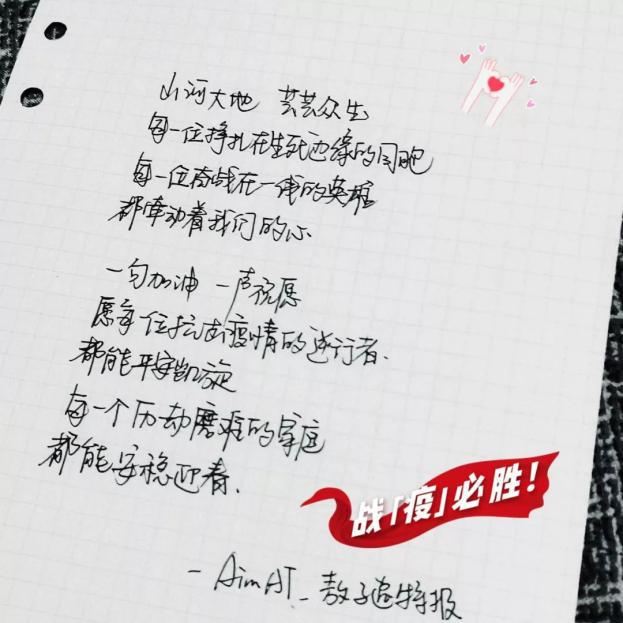 山河大地 芸芸众生
每一位挣扎在生死边缘的同胞
每一位奋战在一线的英雄
都牵动着我们的心
一句加油 一声祝愿
愿每一位抗击疫情的逆行者.
都能平安凯旋
每一个历劫磨难的家庭
都能安稳迎春.
战「疫」必胜！
- AimAT_ 敖子逸特报